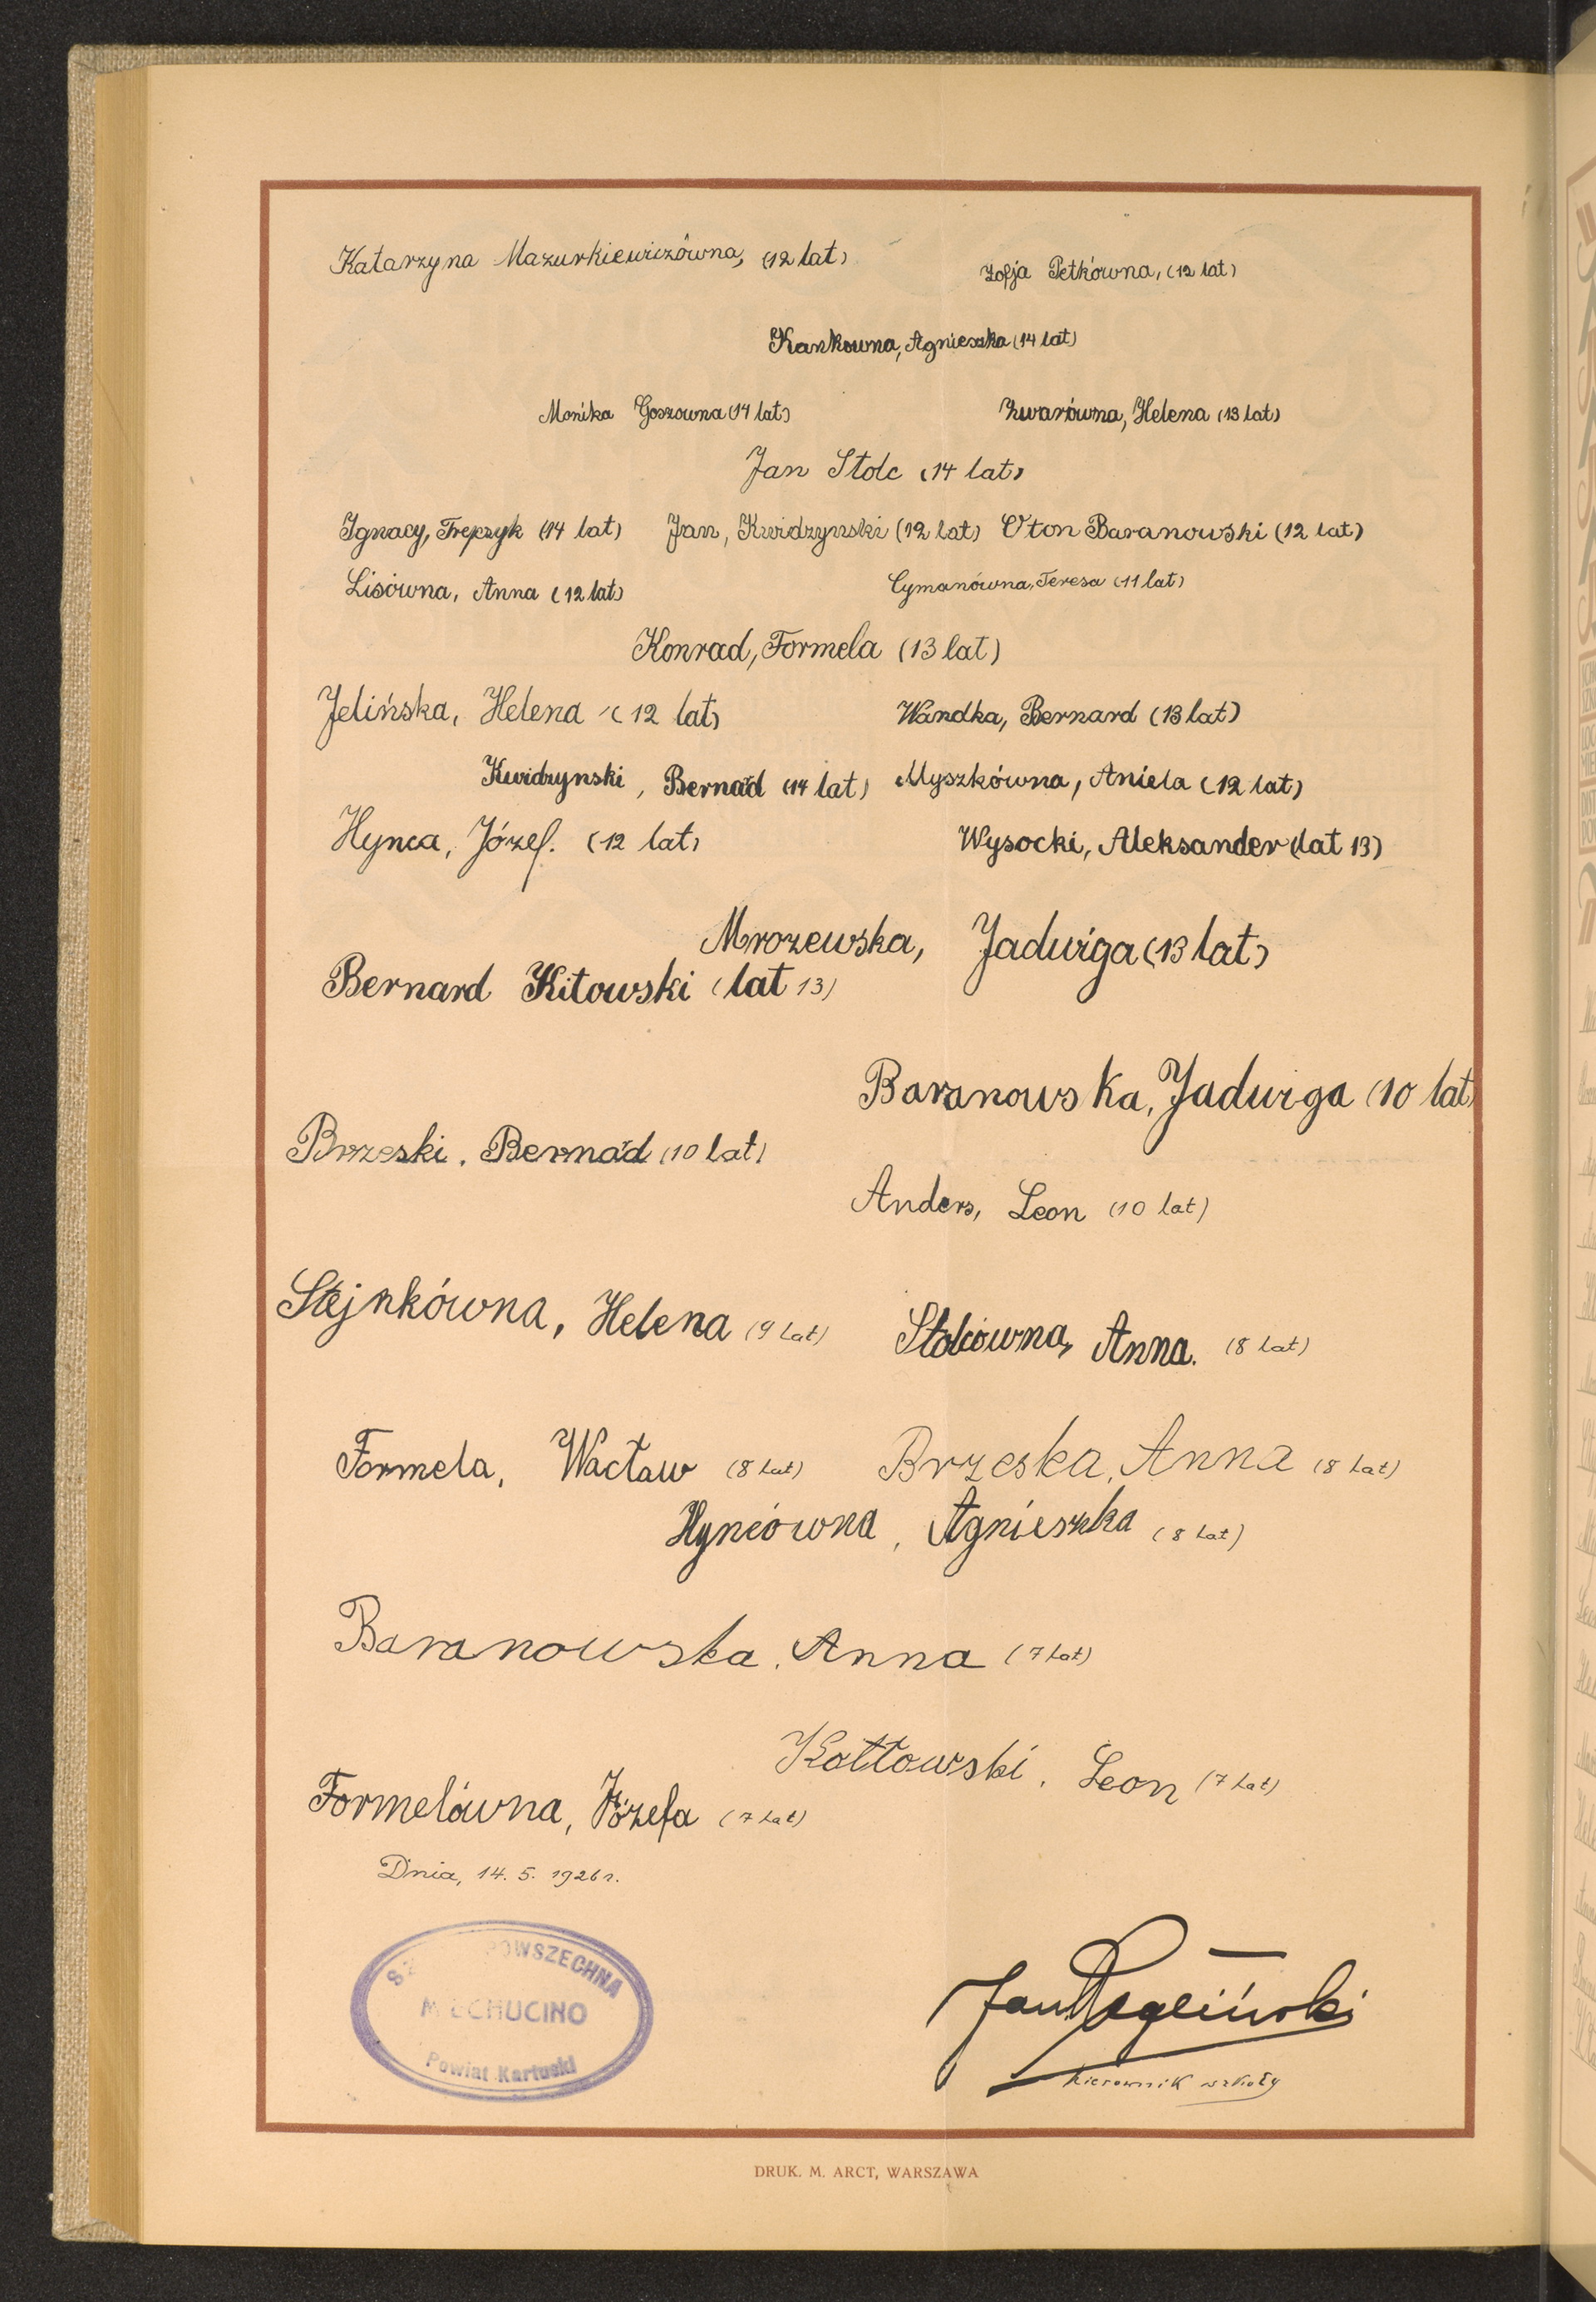 Katarzyna Mazurkiewiczówna, (12 lat)
Zofja Petkówna, (12 lat)
Kankowna, Agnieszka (14 lat)
Monika Goszowna (14 lat)
Żwarówna, Helena (13 lat)
Jan Stolc (14 lat)
Ignacy, Trepczyk (14 lat) Jan, Kwidzynski (12 lat) Oton Baranowski (12 lat)
Lisówna, Anna (12 lat)
Cymanówna, Teresa (11 lat)
Konrad, Formela (13 lat)
Jelińska, Helena (12 lat)
Wandka, Bernard (13 lat)
Kwidzynski, Bernard (14 lat) Myszkówna, Aniela (12 lat)
Hynca, Józef. (12 lat)
Wysocki, Aleksander (lat 13)
Mrozewska, Jadwiga (13 lat)
Bernard Kitowski (lat 13)
Baranowska, Jadwiga (10 lat)
Brzeski, Bernad (10 lat)
Anders, Leon (10 lat)
Stejnkówna, Helena (9 lat)
Stolcówna, Anna. (8 lat)
Formela, Wacław (8 lat)
Brzeska, Anna (8 lat)
Hyncówna, Agnieszka (8 lat)
Baranowska, Anna (7 lat)
Kottowski, Leon (7 lat)
Formelówna, Józefa (7 lat)
Dnia, 14. 5. 1926 r.
POWSZECHNA
MIECHUCINO
Powiat Kartuski
Jan
kierownik szkoły
DRUK. M. ARCT, WARSZAWA